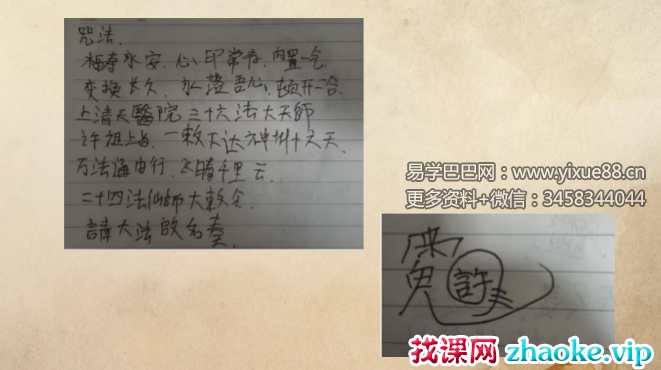 咒法.
福寿永安. 心印常存. 内置一气.
变换长久. 水澄吾心. 顿开一合.
上清天醫院 三十六法大天師
许祖上台. 一敕下达神州十六天.
万法通由行. 飞腾千里云.
二十四法仙師大敕令.
請大法啟为奏.
易学巴巴网：www.yixue88.cn
更多资料+微信：3458344044
許
找课网 zhaoke.vip